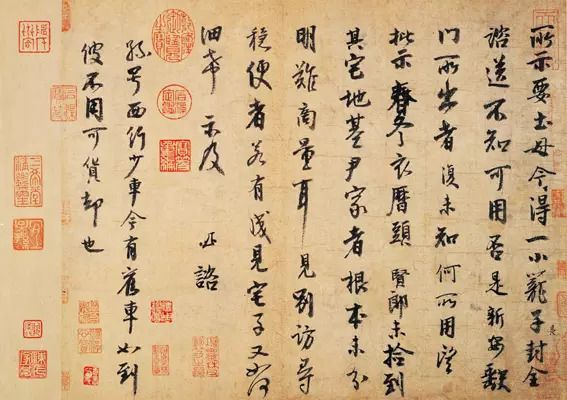 所示要土母今得一小籠子封全
諮送不知可用否是新安缺
門所出者復未知何所用望
批示春冬衣曆頭賢郎未撿到
其宅地基尹家者根本未分
明難商量耳見別訪尋
穩便者若有成見宅子又如何
細希示及諮
孫号西行少車今有舊車如到
彼不用可貨却也